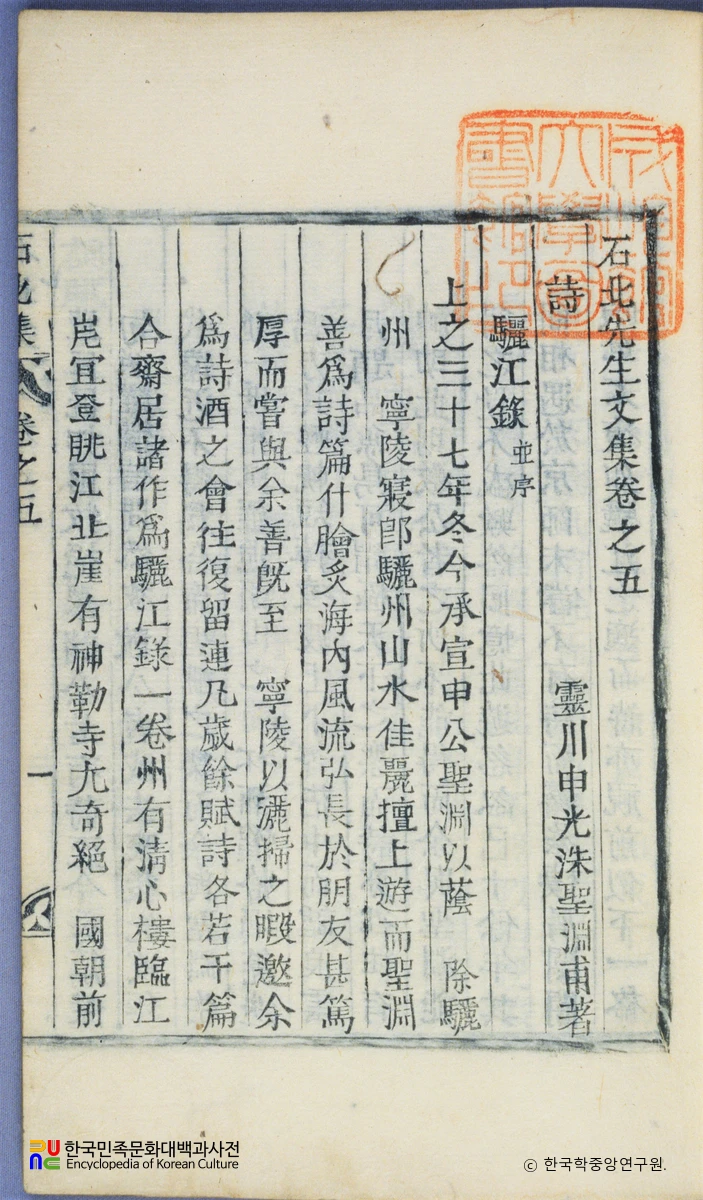 石北先生文集卷之五
靈川申光洙聖淵甫著
詩
驪江錄 並序
上之三十七年冬今承宣申公聖淵以蔭 除驪
州 寧陵寢郎驪州山水佳麗擅上游而聖淵
善爲詩篇什膾炙海內風流弘長於朋友甚篤
厚而嘗與余善旣至 寧陵以灑掃之暇邀余
爲詩酒之會往復留連凡歲餘賦詩各若干篇
合齋居諸作爲驪江錄一卷州有淸心樓臨江
皃宜登眺江北崖有神勒寺尤奇絕 國朝前
石北集 卷之五
一
한국민족문화대백과사전
Encyclopedia of Korean Culture
© 한국학중앙연구원.